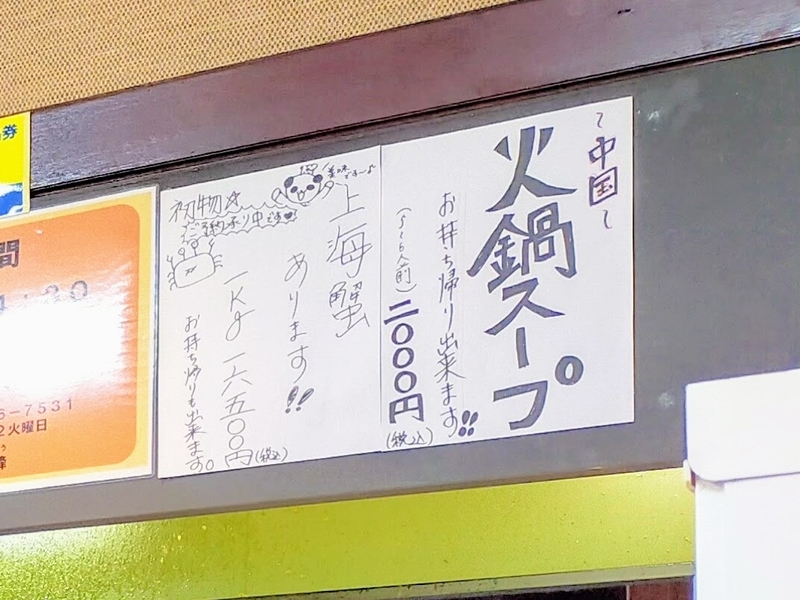 〜中国〜
火鍋スープ
お持ち帰り出来ます!!
(5〜6人前)
二〇〇〇円
(税込)
美味ですよ♪
上海蟹
あります!!
初物☆
ご予約承り中です♥
1Kg 一六五〇〇円
(税込)
お持ち帰りも出来ます。
券
間
6-7531
2火曜日